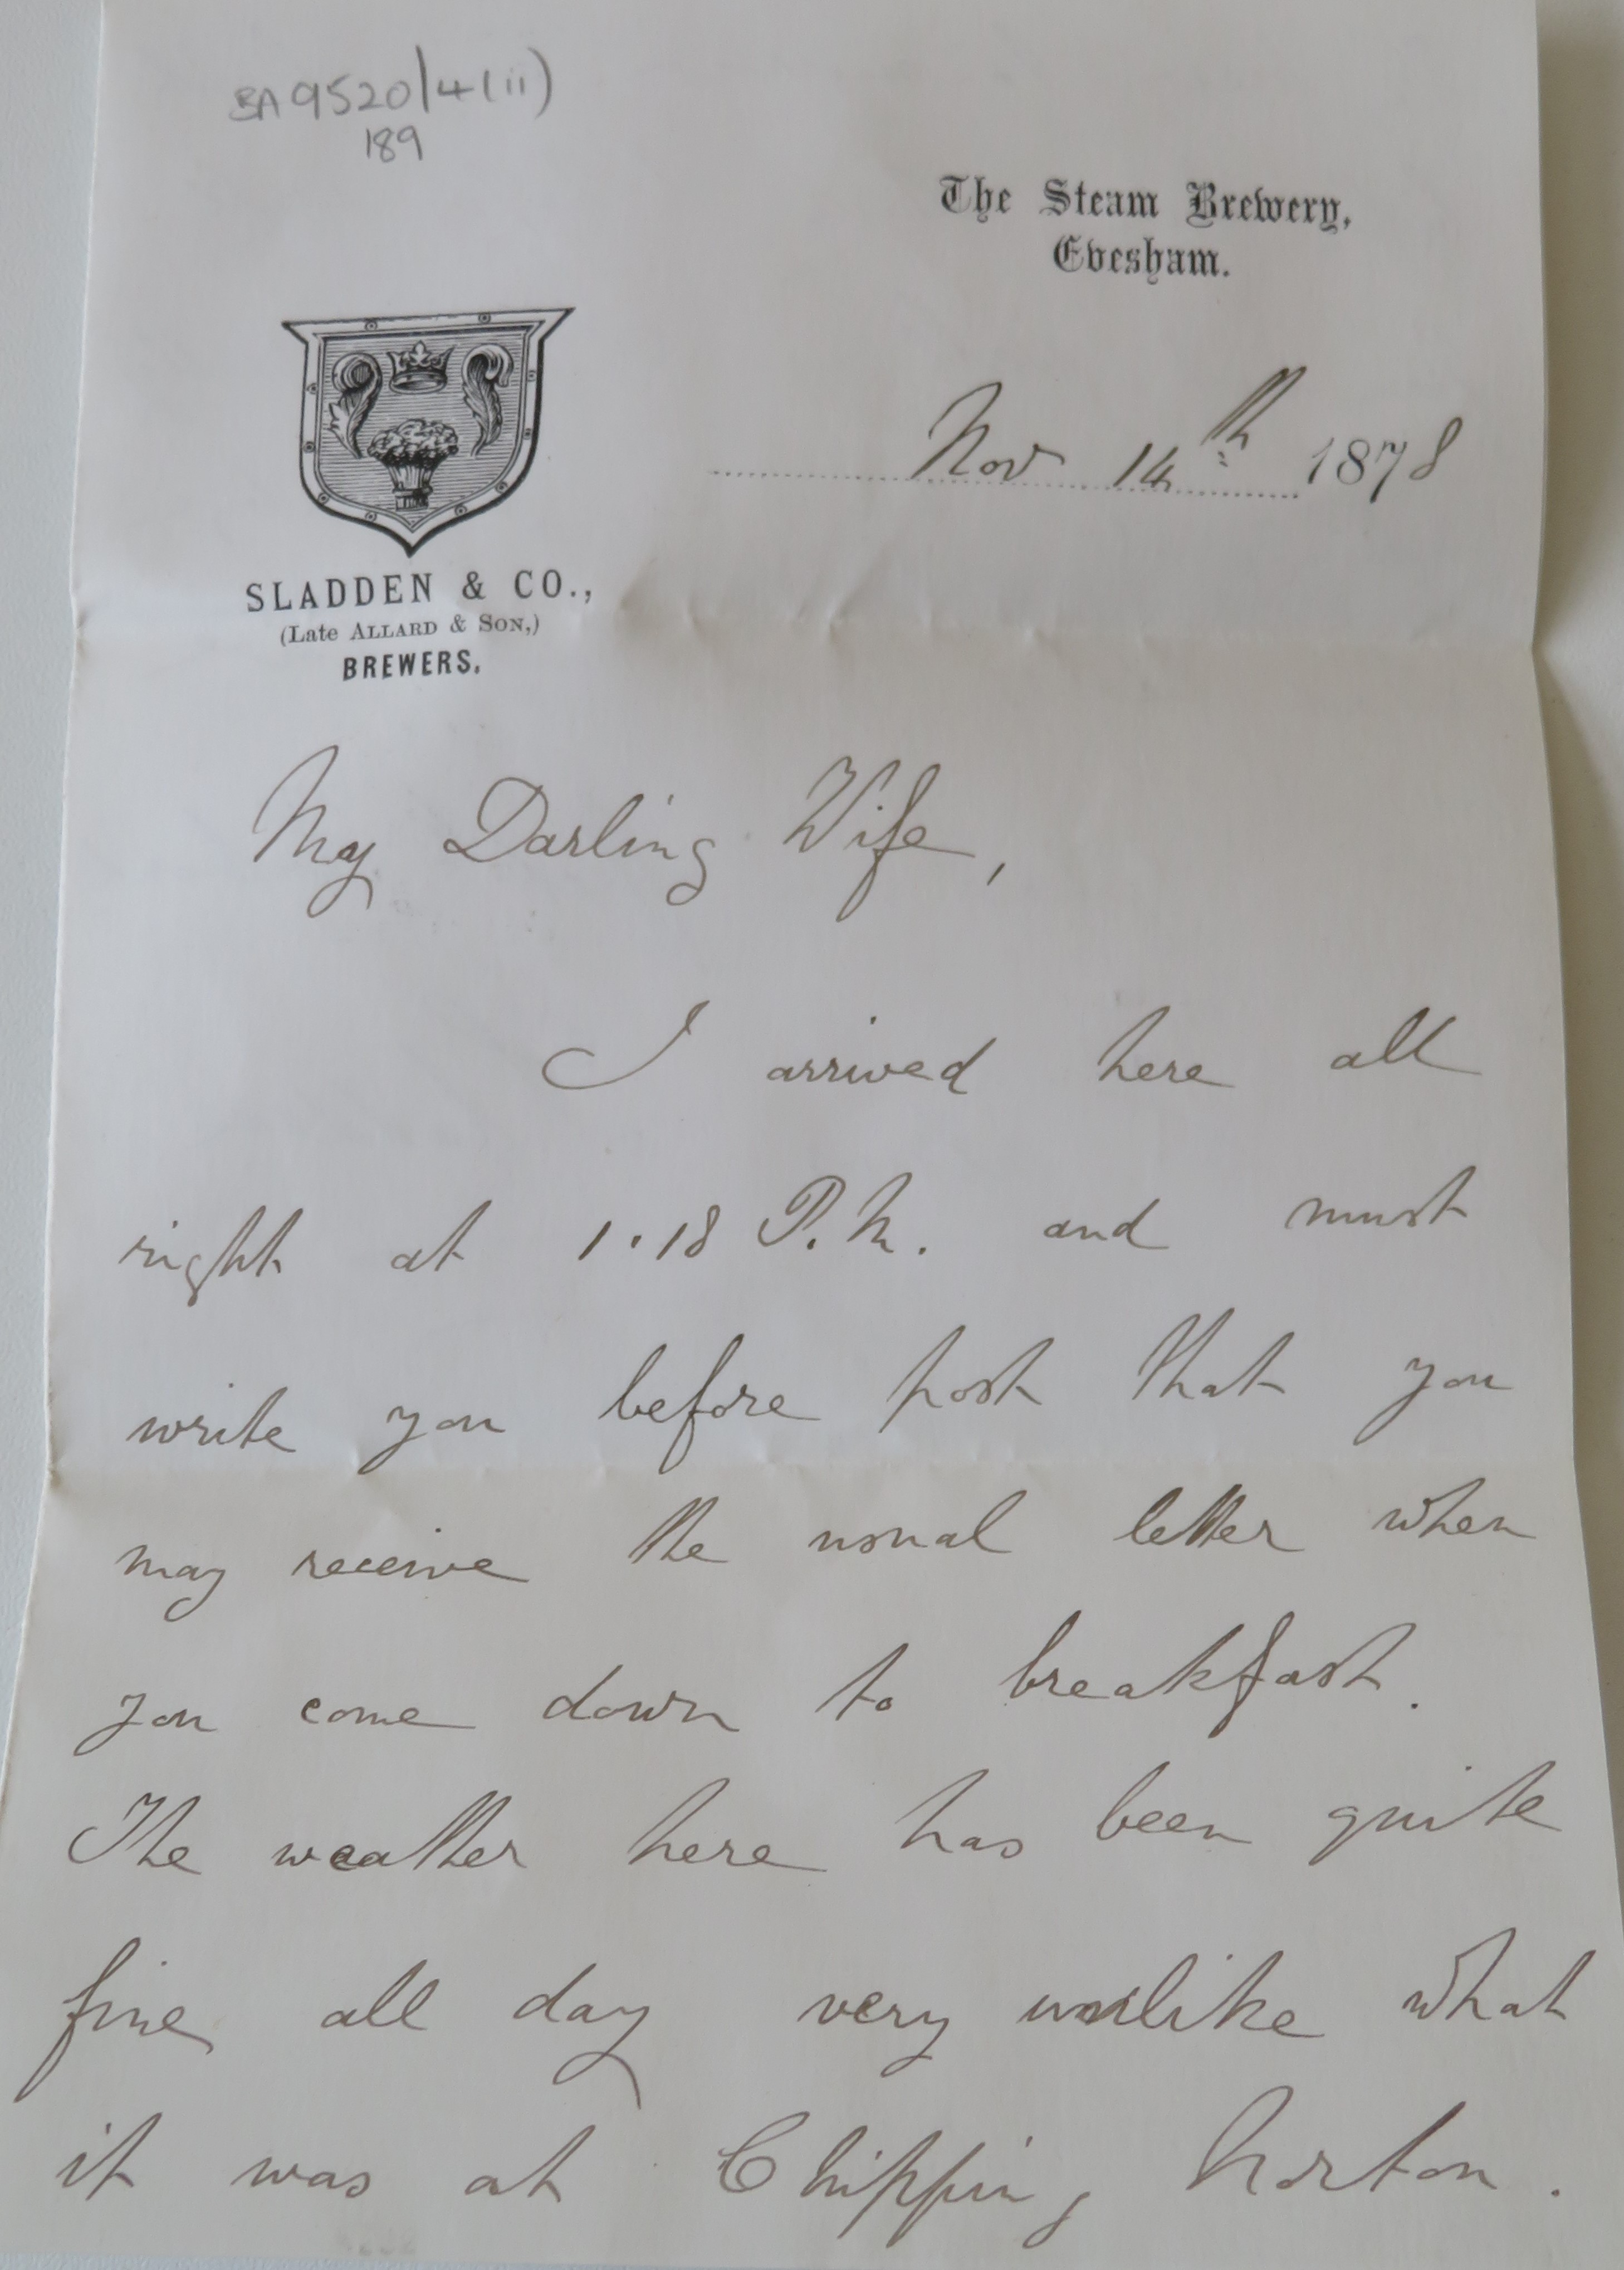 BA9520/4(ii)
189
The Steam Brewery,
Evesham.
Nov 14th 1878
SLADDEN & CO.,
(Late ALLARD & SON,)
BREWERS.
My Darling Wife,
I arrived here all
right at 1.18 P.M. and must
write you before post that you
may receive the usual letter when
you come down to breakfast.
The weather here has been quite
fine all day very unlike what
it was at Chipping Norton.